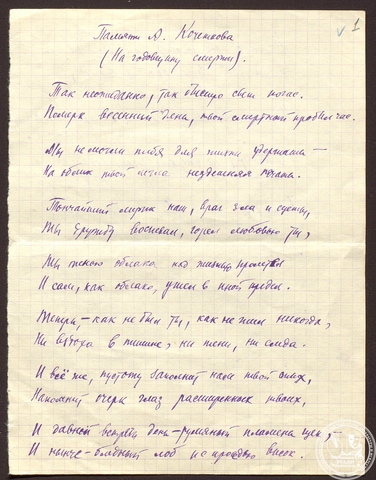 1
Памяти А. Кочеткова
(На годовщину смерти).
Так неожиданно, так быстро свет погас.
Померк весенний день, твой смертный пробил час.
Мы не могли тебя для жизни удержать —
На облик твой легла неуденья печать.
Тончайший лирик наш, враг зла и суеты,
Ты дружбу воспевал, горел любовью ты,
Ты тенью облака над жизнью пролетел
И сам, как облако, ушел в иной предел.
Теперь, — как не был ты, как не жил никогда,
Ни вздоха в тишине, ни тени, ни следа.
И всё же, пустоту заполнит нам твой стих,
Напомнит очерк глаз расширенных твоих,
И давней встречи день — румяный пламень щек, —
И нынче — бледный лоб и прядью висок.